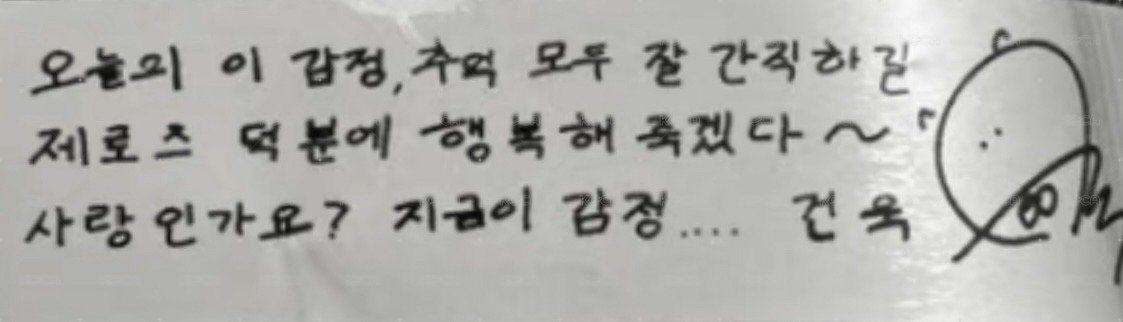 오늘의 이 감정, 추억 모두 잘 간직하길
제로즈 덕분에 행복해 죽겠다~
사랑인가요? 지금이 감정.... 건욱